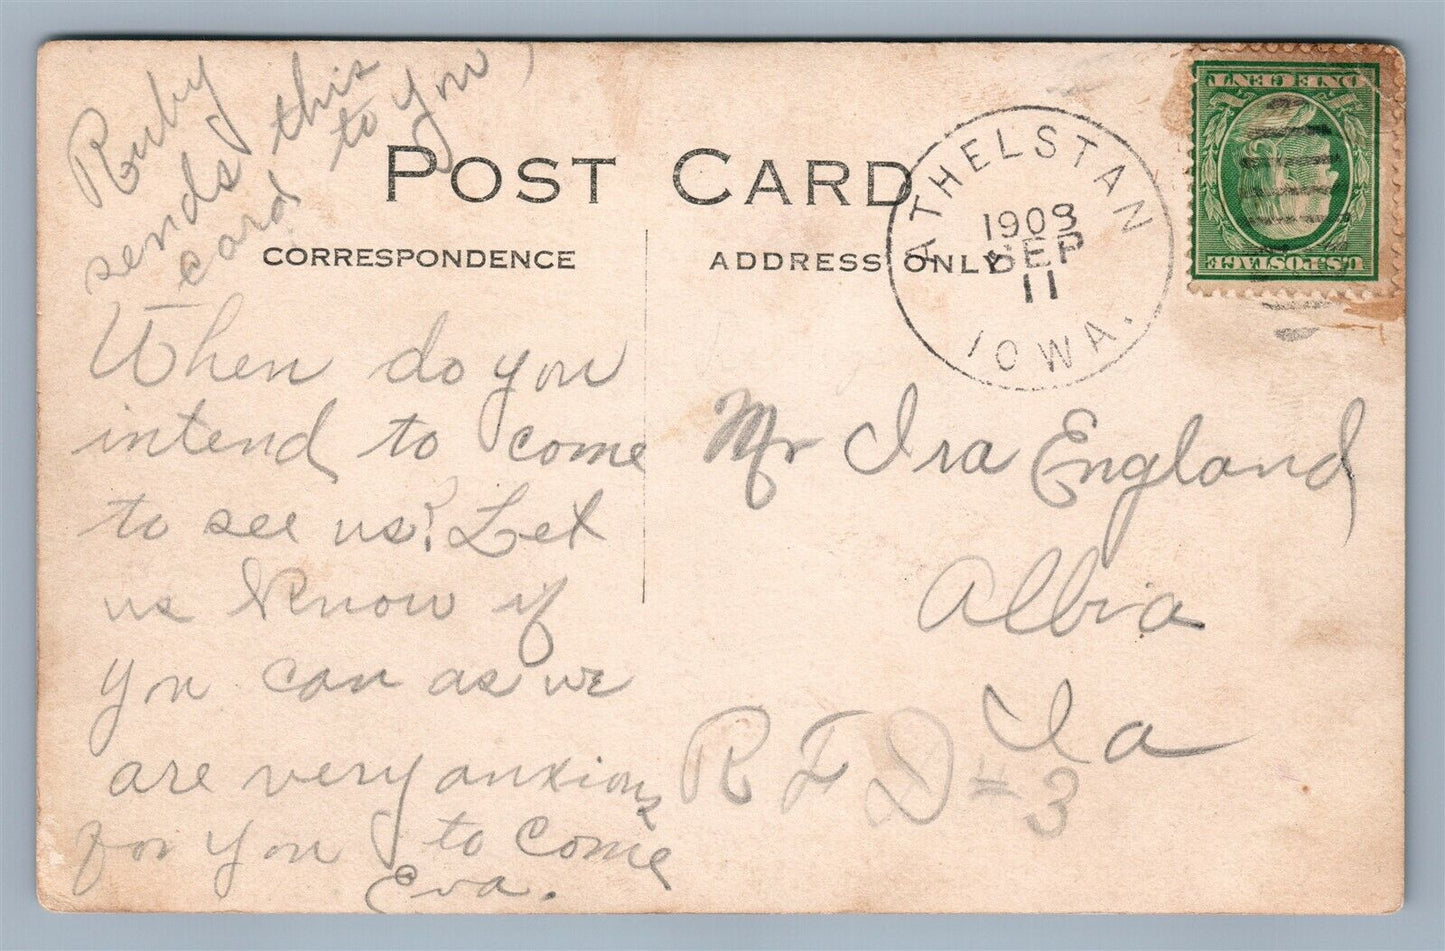 Ruby
sends this
card to you
POST CARD
CORRESPONDENCE
ADDRESS ONLY
ATHELSTAN
1908
SEP
11
IOWA.
ONE CENT
U.S. POSTAGE
When do you
intend to come
to see us? Let
us know if
you can as we
are very anxious
for you to come
Eva.
Mr Ira England
Albia
Ia
R F D = 3